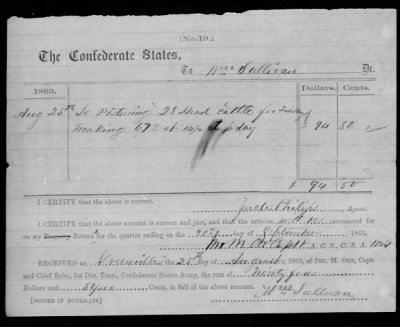 (No. 19.)
The Confederate States,
To Wm Sullivan Dr.
1863. Dollars. Cents.
Aug 25th To Pasturing 28 Head Cattle for
making 672 at 14¢ day $ 94 50
$ 94 50
I CERTIFY that the above is correct. Philips, Agent.
I CERTIFY that the above account is correct and just, and that the articles accounted
for on my Property Return for the quarter ending on the day of September 1863,
A. C. S., C. S. A.
RECEIVED at Greenville the 25th day of August 1863, of Jno. M. Orr, Capt.
and Chief Subs., 1st Dist, Tenn., Confederate States Army, the sum of Ninety four
Dollars and 50/100 Cents, in full of the above account.
[SIGNED IN DUPLICATE] Wm Sullivan